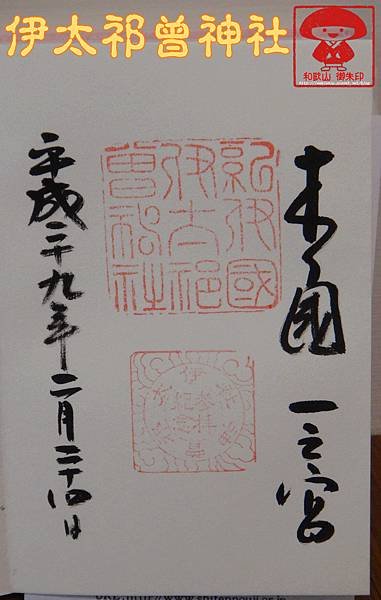 伊太祁曽神社
和歌山 御朱印
木國 一之宮
紀伊國
伊太祁
曽神社
平成二十九年二月二十四日